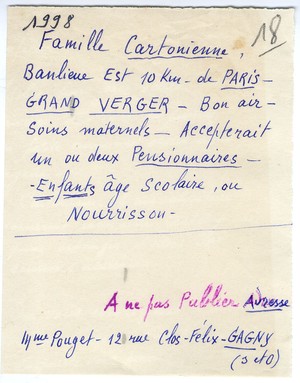 1998
18
Famille Cartonienne,
Banlieue Est 10 Km - de PARIS -
GRAND VERGER - Bon air -
Soins maternels - Accepterait
un ou deux Pensionnaires -
- Enfants âge Scolaire, ou
Nourrisson -
A ne pas Publier Adresse
Mme Pouget - 12 rue Clos - Felix - GAGNY
(S et O)